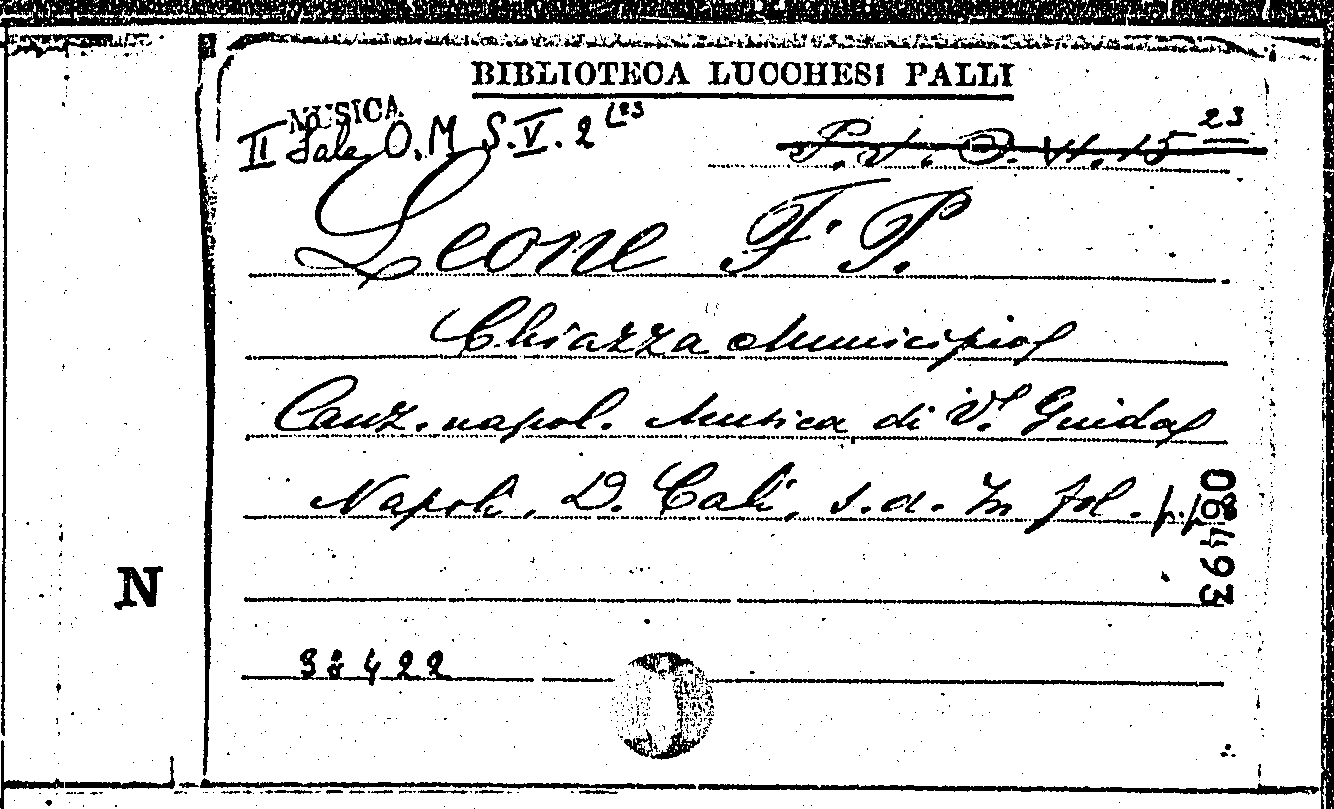 BIBLIOTECA LUCCHESI PALLI
MUSICA
II Sala O.M S.V. 2
23
Leone F. P.
Chiazza Municipio
Canz. napol. Musica di V. Guida
Napoli, D. Calì, s.d. In fol. p.p.
064493
N
38422